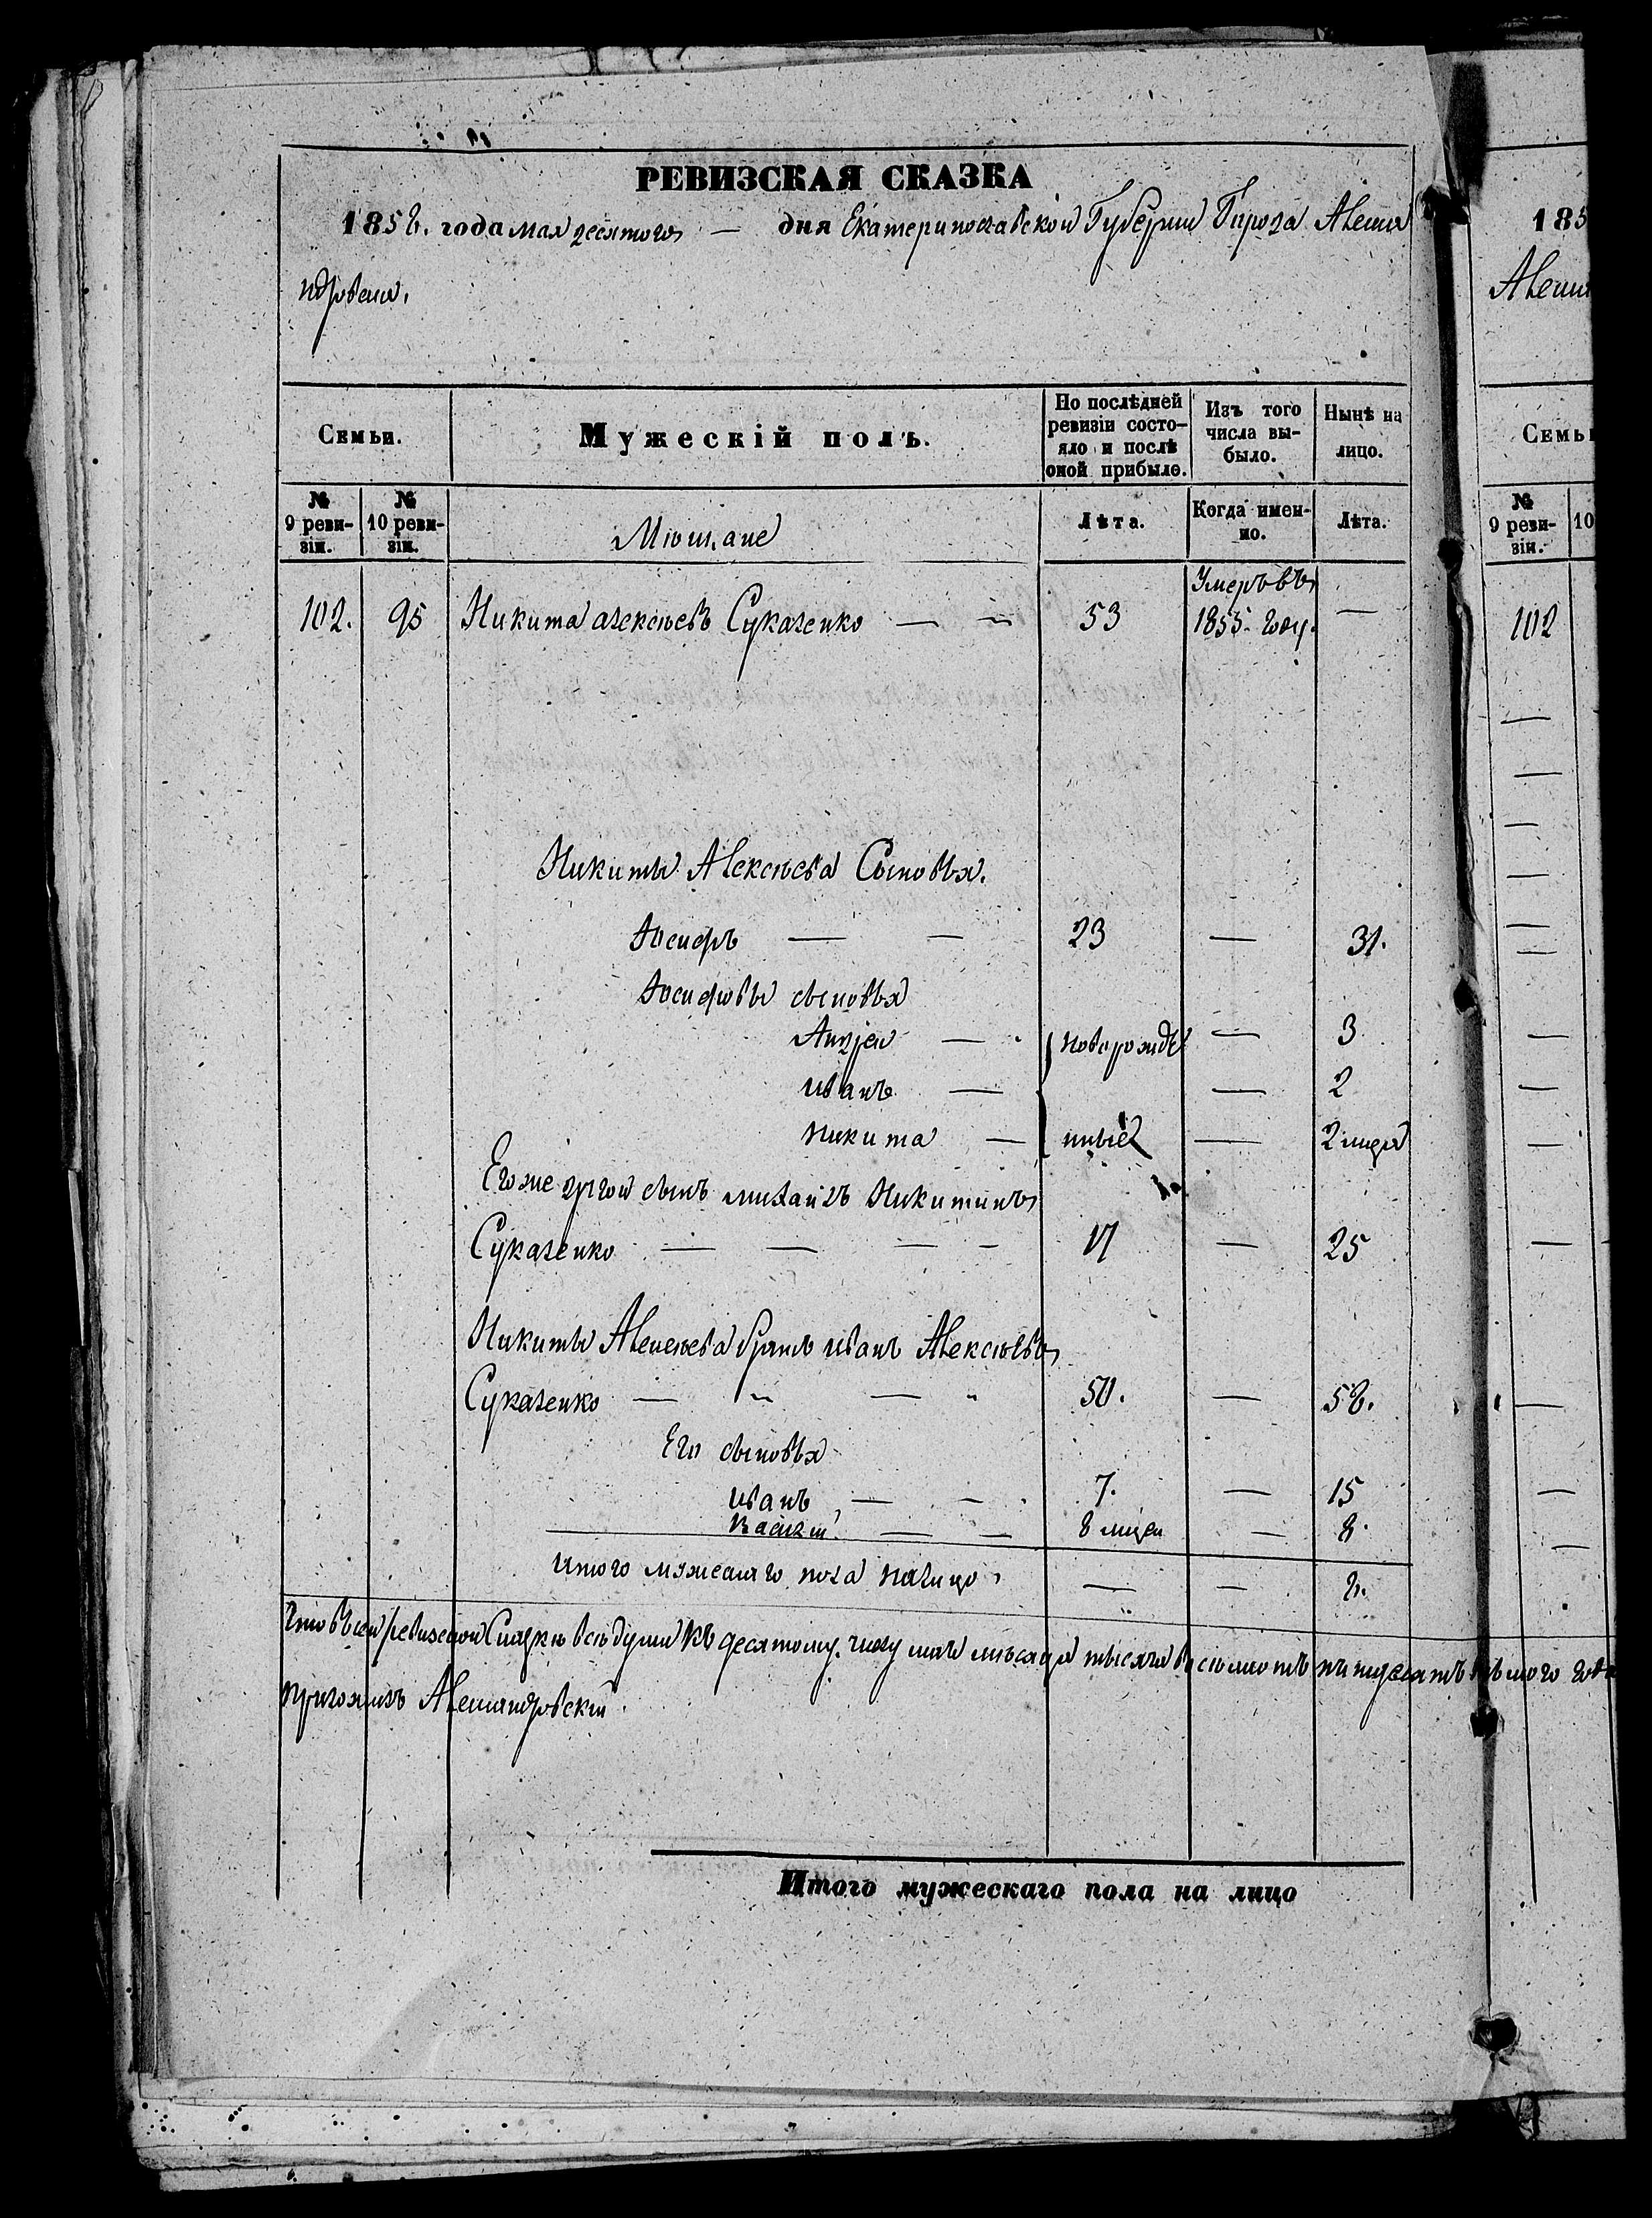 РЕВИЗСКАЯ СКАЗКА
1858. года мая десятого — дня Екатеринославской Губернии Города Алексан
ндровска,
Семьи.
Мужескій полъ.
По послѣдней ревизіи состо-
яло и послѣ оной прибыло.
Изъ того числа вы-
было.
Нынѣ на лицо.
№ 9 реви-
зіи.
№ 10 реви-
зіи.
Мѣщане
Лѣта.
Когда имен-
но.
Лѣта.
102. 95 Никита Алексѣевъ Сукаченко — — 53 Умеръ въ 1855. году. —
Никиты Алексѣева Сыновья.
Іосифъ — — 23 — 31.
Іосифовы сыновья
Андрей — новорожде — 3
Иванъ — — 2
Никита — нные — 2 меся
Его же другой сынъ Михаилъ Никитинъ
Сукаченко — — — — 17 — 25
Никиты Алексѣева братъ Иванъ Алексѣевъ
Сукаченко — — — — 50. — 58.
Его сыновья
Иванъ — — 7. — 15
Василій. — — 8 меся — 8.
Итого мужескаго пола налицо — — 8.
Что въ сей ревизской Сказке всѣ души къ десятому числу мая мѣсяца тысяча восемьсотъ пятьдесятъ года
Александровскій.
Итого мужескаго пола на лицо
185
Алекса
Семьи
№ 9 реви-
зіи.
10
102